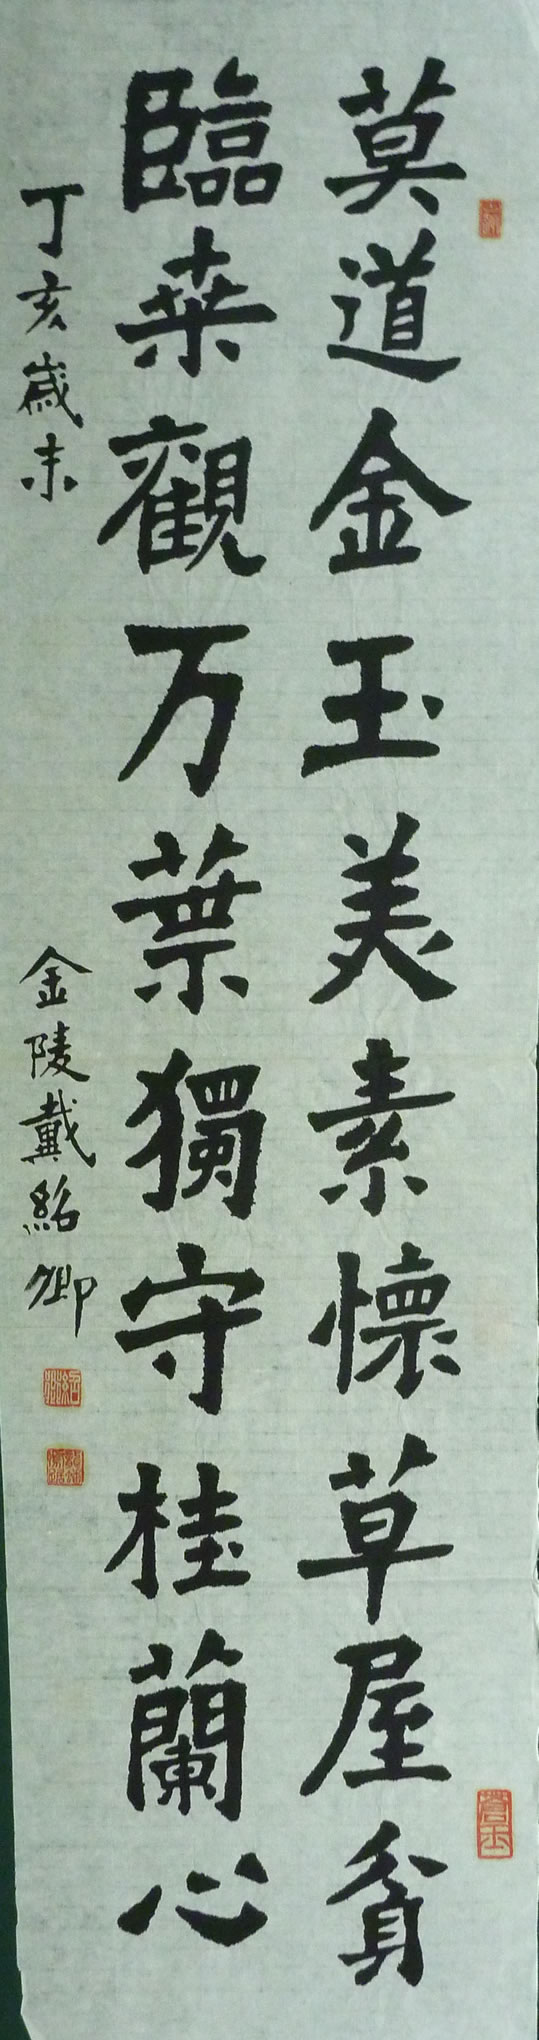 莫道金玉美素懷草屋貧
臨桒觀万葉獨守桂蘭心
丁亥歲末
金陵戴紹卿